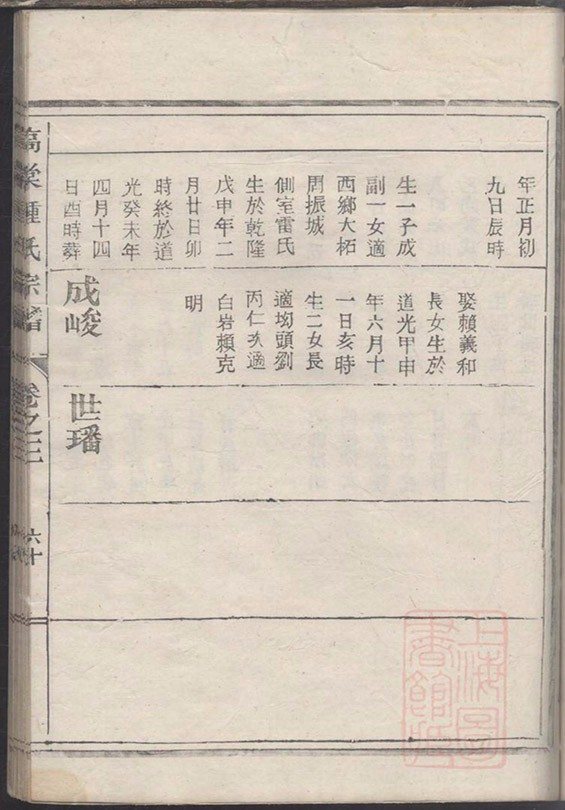 年正月初
九日辰時
生一子成
副一女適
西鄉大柘
周振城
側室雷氏
生於乾隆
戊申年二
月廿日卯
時終於道
光癸未年
四月十四
日酉時葬
娶賴義和
長女生於
道光甲申
年六月十
一日亥時
生二女長
適坳頭劉
丙仁次適
白岩賴克
明
成峻
世璠
鍾氏宗譜
卷之三
六十
上海圖
書館藏